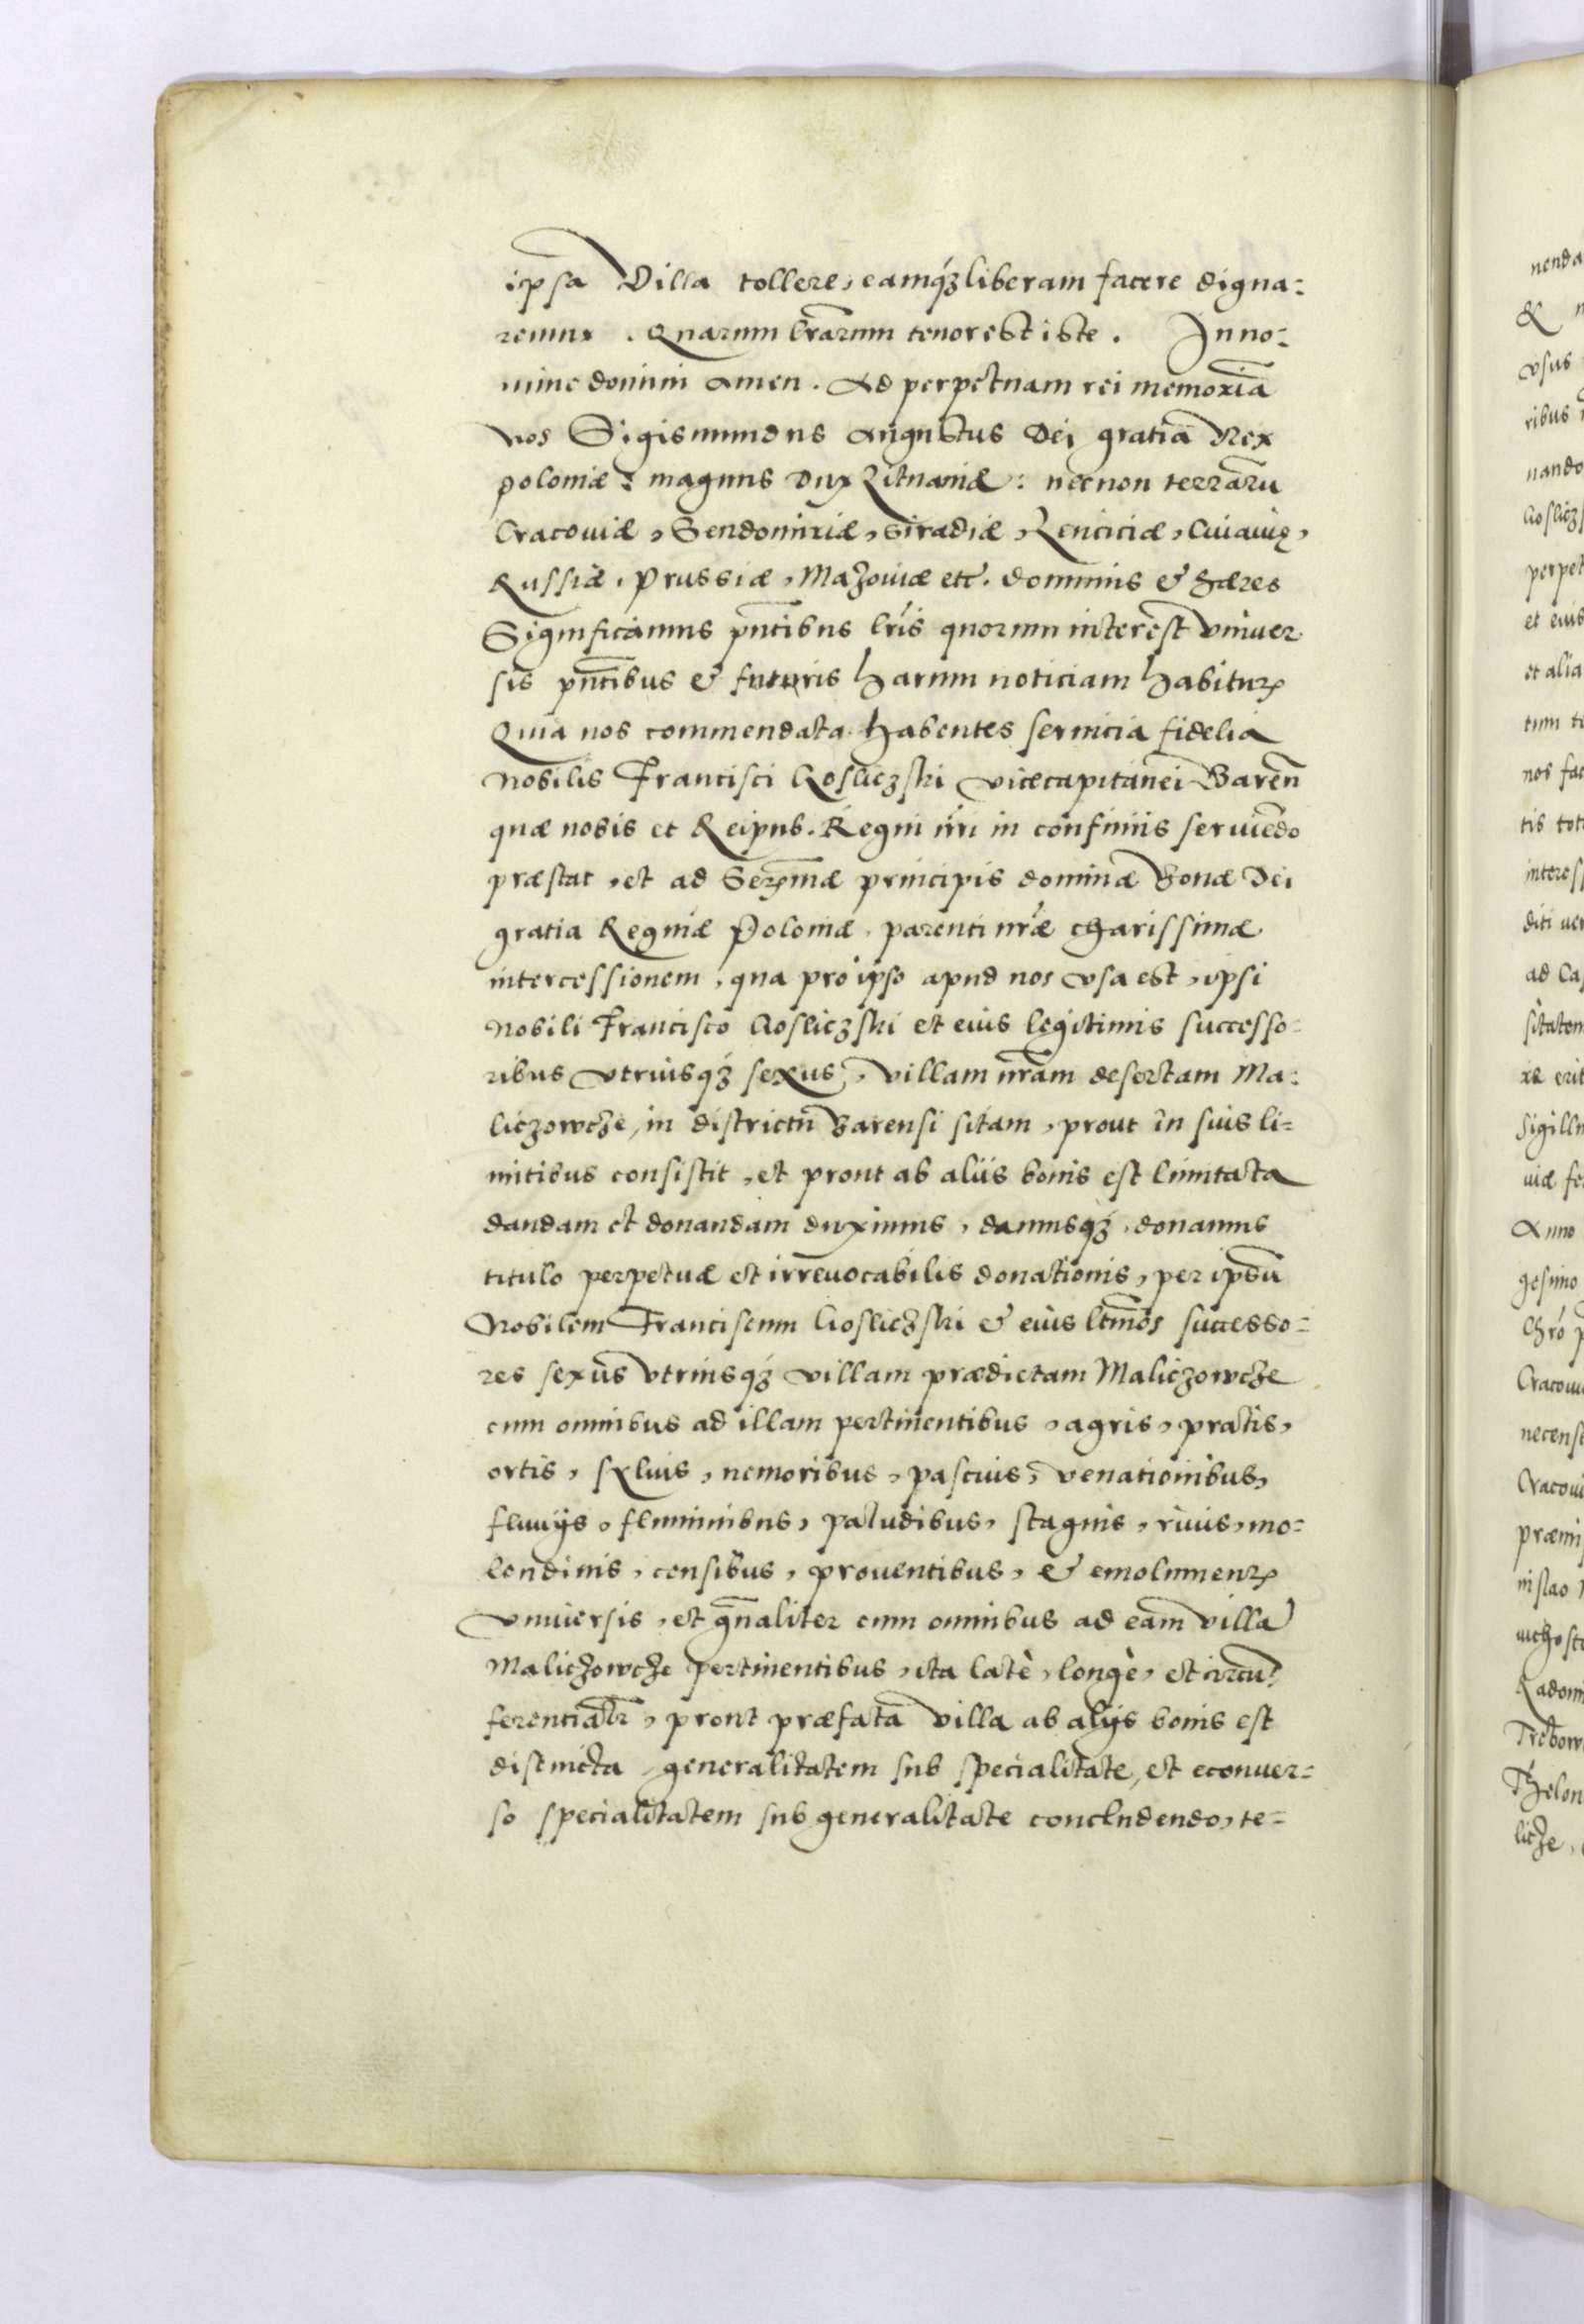 ipsa Villa tollere, eamq́ʒ liberam facere digna:
remur. Quarum lr̃arum tenor est iste. In no:
mine domini Amen. Ad perpetuam rei memoriã
nos Sigismundus Augustus Dei gratia Rex
poloniæ: magnus Dux Lituaniæ: necnon terrarũ
Cracoviæ, Sendomiriæ, Siradiæ, Lenciciæ, Cuiauię,
Russiæ, Prussiæ, Mazouiæ etc. dominus & hæres
Significamus pñtibus lr̃is quorum interest vniuer
sis pñtibus & futuris harum noticiam habiturꝭ
Quia nos commendata habentes seruicia fidelia
Nobilis Francisci Gosliczski vicecapitanei Bareñ
quæ nobis et Reipub. Regni nr̃i in confiniis seruiẽdo
præstat, et ad Serꝭmæ principis dominæ Bonæ Dei
gratia Reginæ Poloniæ, parenti nr̃æ charissimæ
intercessionem, qua pro ipso apud nos vsa est, ipsi
Nobili Francisco Gosliczski et eius legitimis successo:
ribus vtriusq́ʒ sexus, villam nr̃am desertam Ma:
liczowcze, in districtũ Barensi sitam, prout in suis li=
mitibus consistit, et prout ab aliis bonis est limitata
dandam et donandam duximus, damusq́ʒ, donamus
titulo perpetuæ et irreuocabilis donationis, per ipsũ
Nobilem Franciscum Gosliczski & eius ltm̃os successo:
res sexus vtriusq́ʒ villam prædictam Maliczowcze
cum omnibus ad illam pertinentibus, agris, pratis,
ortis, syluis, nemoribus, pascuis, venationibus,
fluuijs, fluminibus, paludibus, stagnis, riuis, mo:
lendinis, censibus, prouentibus, & emolumentꝭ
vniuersis, et gñaliter cum omnibus ad eam villã
Maliczowcze pertinentibus, ita latè, longè, et circũ:
ferentialr̃, prout præfata villa ab alijs bonis est
distincta, generalitatem sub specialitate, et econuer:
so specialitatem sub generalitate concludendo, te=
nenda
&
vsus
ribus
nando
Gosliczs
perpet
et eius
et alia
tum
nos fac
tis
interess
diti
ad
sitatem
erit
Sigillu
uiæ
Anno
gesimo
Chrõ
Cracoui
necens
Cracoui
præmi
nislao
Radom
licze,